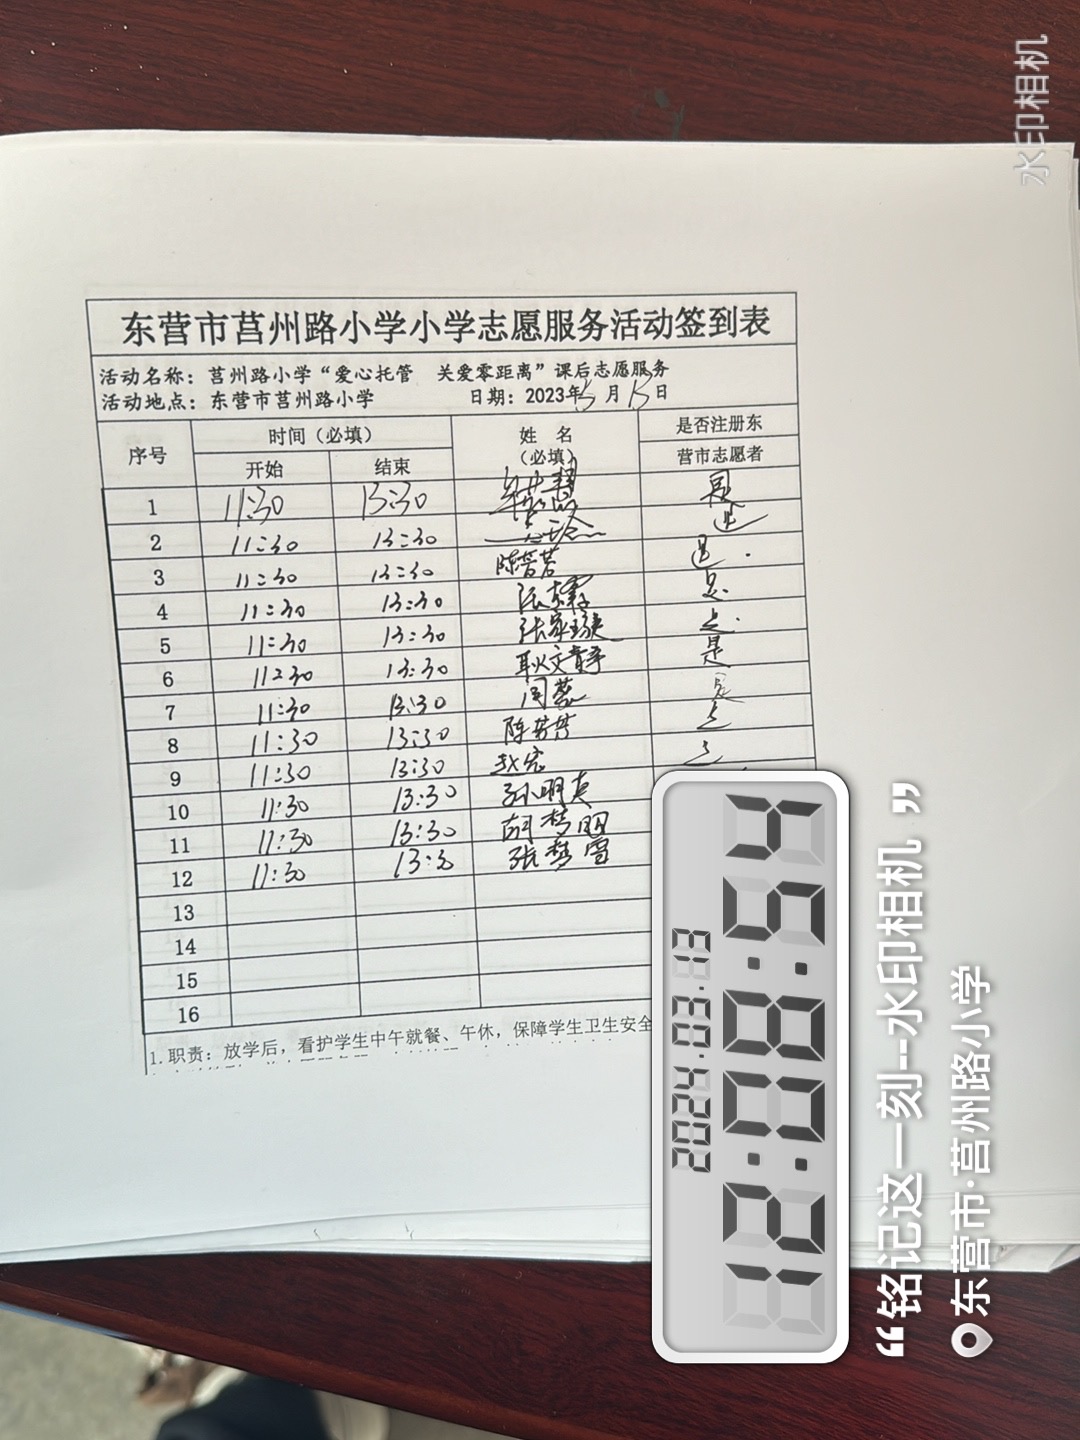 水印相机
东营市莒州路小学小学志愿服务活动签到表
活动名称：莒州路小学“爱心托管 关爱零距离”课后志愿服务
活动地点：东营市莒州路小学 日期：2023年 月13日
序号 时间（必填） 姓名（必填） 是否注册东营市志愿者
开始 结束
1 11:30 13:30 是
2 11:30 13:30 是
3 11:30 13:30 陈营营 是
4 11:30 13:30 是
5 11:30 13:30 张家璇 是
6 11:30 13:30 耿文静 是
7 11:30 13:30 周蕊 是
8 11:30 13:30 陈芳芳 是
9 11:30 13:30 赵完 是
10 11:30 13:30 孙明真
11 11:30 13:30 胡梦明
12 11:30 13:30 张梦雪
13
14
15
16
1.职责：放学后，看护学生中午就餐、午休，保障学生卫生安全
2024.03.13
12:00:54
“铭记这一刻--水印相机”
东营市·莒州路小学